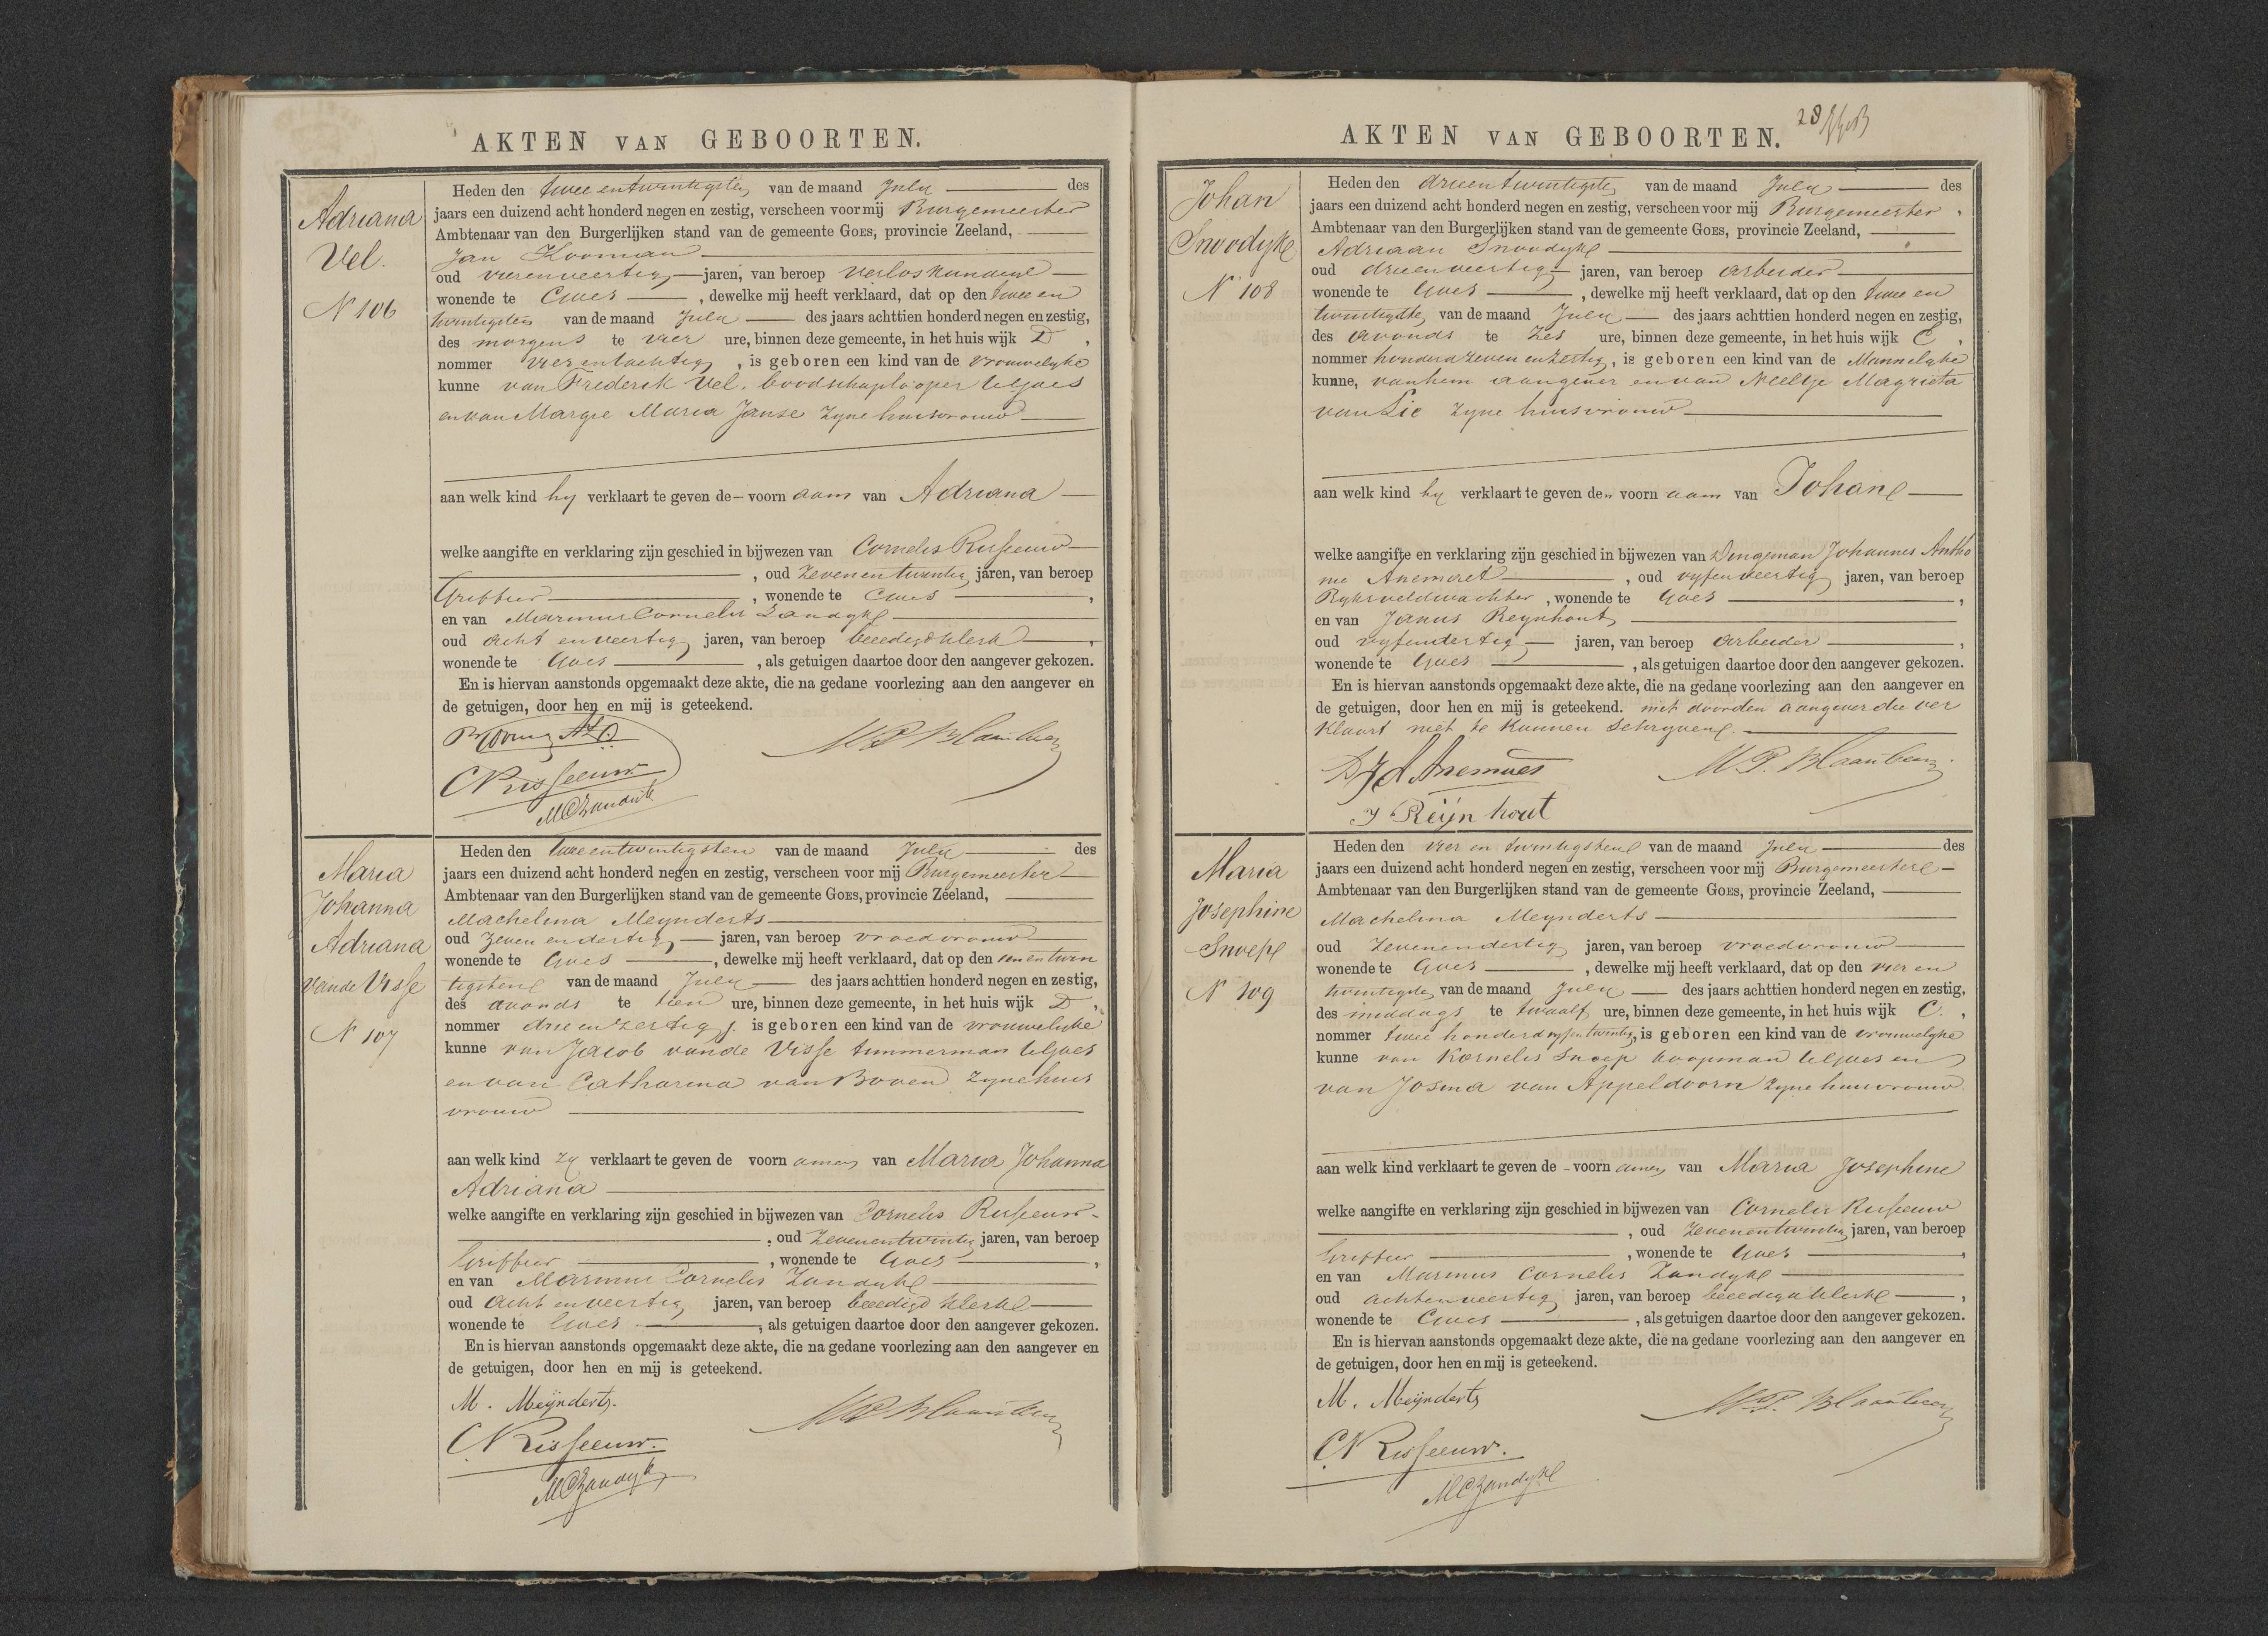 AKTEN VAN GEBOORTEN.
Adriana
Vel.
N 106
Heden den twee en twintigsten van de maand July des
jaars een duizend acht honderd negen en zestig, verscheen voor mij Burgemeester
Ambtenaar van den Burgerlijken stand van de gemeente GOES, provincie Zeeland,
Jan Kooman
oud vierenveertig jaren, van beroep verloskundige
wonende te Goes, dewelke mij heeft verklaard, dat op den twee en
twintigsten van de maand July des jaars achttien honderd negen en zestig,
des morgens te vier ure, binnen deze gemeente, in het huis wijk D,
nommer vier en tachtig, is geboren een kind van de vrouwelyke
kunne van Frederik Vel, boodschaplooper te Goes
en van Margie Maria Janse zyne huisvrouw
aan welk kind hy verklaart te geven de voorn aam van Adriana
welke aangifte en verklaring zijn geschied in bijwezen van Cornelis Risseeuw
, oud zevenentwintig jaren, van beroep
Griffier, wonende te Goes,
en van Marinus Cornelis Zandyk
oud acht en veertig jaren, van beroep beeedigd klerk,
wonende te Goes, als getuigen daartoe door den aangever gekozen.
En is hiervan aanstonds opgemaakt deze akte, die na gedane voorlezing aan den aangever en
de getuigen, door hen en mij is geteekend.
CN Risseeuw
MC Zandijk
Maria
Johanna
Adriana
van de Visse
N 107
Heden den tweeentwintigsten van de maand July des
jaars een duizend acht honderd negen en zestig, verscheen voor mij Burgemeester
Ambtenaar van den Burgerlijken stand van de gemeente GOES, provincie Zeeland,
Machelina Meynderts
oud zeven en dertig jaren, van beroep vroedvrouw
wonende te Goes, dewelke mij heeft verklaard, dat op den een en twin
tigsten van de maand July des jaars achttien honderd negen en zestig,
des avonds te tien ure, binnen deze gemeente, in het huis wijk D,
nommer drie en zestig, is geboren een kind van de vrouwelyke
kunne van Jacob van de Visse timmerman te Goes
en van Catharina van Boven zyne huis
vrouw
aan welk kind zy verklaart te geven de voorn amen van Maria Johanna
Adriana
welke aangifte en verklaring zijn geschied in bijwezen van Cornelis Risseeuw
, oud zevenentwintig jaren, van beroep
Griffier, wonende te Goes,
en van Marinus Cornelis Zandyk
oud acht en veertig jaren, van beroep beeedigd klerk
wonende te Goes, als getuigen daartoe door den aangever gekozen.
En is hiervan aanstonds opgemaakt deze akte, die na gedane voorlezing aan den aangever en
de getuigen, door hen en mij is geteekend.
M. Meijnderts.
CN Risseeuw.
MC Zandijk
AKTEN VAN GEBOORTEN.
28
Johan
Snoodyk
N 108
Heden den drieentwintigste van de maand July des
jaars een duizend acht honderd negen en zestig, verscheen voor mij Burgemeester
Ambtenaar van den Burgerlijken stand van de gemeente GOES, provincie Zeeland,
Adriaan Snoodyk
oud drieenveertig jaren, van beroep arbeider
wonende te Goes, dewelke mij heeft verklaard, dat op den twee en
twintigste van de maand July des jaars achttien honderd negen en zestig,
des avonds te zes ure, binnen deze gemeente, in het huis wijk C,
nommer honderd zeven en zestig, is geboren een kind van de Mannelyke
kunne, van hem aangever en van Neeltje Magrieta
van Lie zyne huisvrouw
aan welk kind hy verklaart te geven den voorn aam van Johan
welke aangifte en verklaring zijn geschied in bijwezen van Dingeman Johannes Antho
nie Anemaet, oud vyfenveertig jaren, van beroep
Ryksveldwachter, wonende te Goes,
en van Janus Reynhout
oud vyfendertig jaren, van beroep arbeider,
wonende te Goes, als getuigen daartoe door den aangever gekozen.
En is hiervan aanstonds opgemaakt deze akte, die na gedane voorlezing aan den aangever en
de getuigen, door hen en mij is geteekend. niet door den aangever die ver
klaart niet te kunnen schryven
J Reijnhout
Maria
Josephine
Snoep
N 109
Heden den vier en twintigsten van de maand July des
jaars een duizend acht honderd negen en zestig, verscheen voor mij Burgemeester
Ambtenaar van den Burgerlijken stand van de gemeente GOES, provincie Zeeland,
Machelina Meynderts
oud zevenendertig jaren, van beroep vroedvrouw
wonende te Goes, dewelke mij heeft verklaard, dat op den vier en
twintigste van de maand July des jaars achttien honderd negen en zestig,
des middags te twaalf ure, binnen deze gemeente, in het huis wijk C.,
nommer twee honderd vyfentwintig, is geboren een kind van de vrouwelyke
kunne van Kornelis Snoep koopman te Goes en
van Josina van Appeldoorn zyne huisvrouw
aan welk kind verklaart te geven de voorn amen van Maria Josephine
welke aangifte en verklaring zijn geschied in bijwezen van Cornelis Risseeuw
, oud zevenentwintig jaren, van beroep
Griffier, wonende te Goes,
en van Marinus Cornelis Zandyk
oud achtenveertig jaren, van beroep beeedigd klerk,
wonende te Goes, als getuigen daartoe door den aangever gekozen.
En is hiervan aanstonds opgemaakt deze akte, die na gedane voorlezing aan den aangever en
de getuigen, door hen en mij is geteekend.
M. Meijnderts
CN Risseeuw.
MC Zandyk